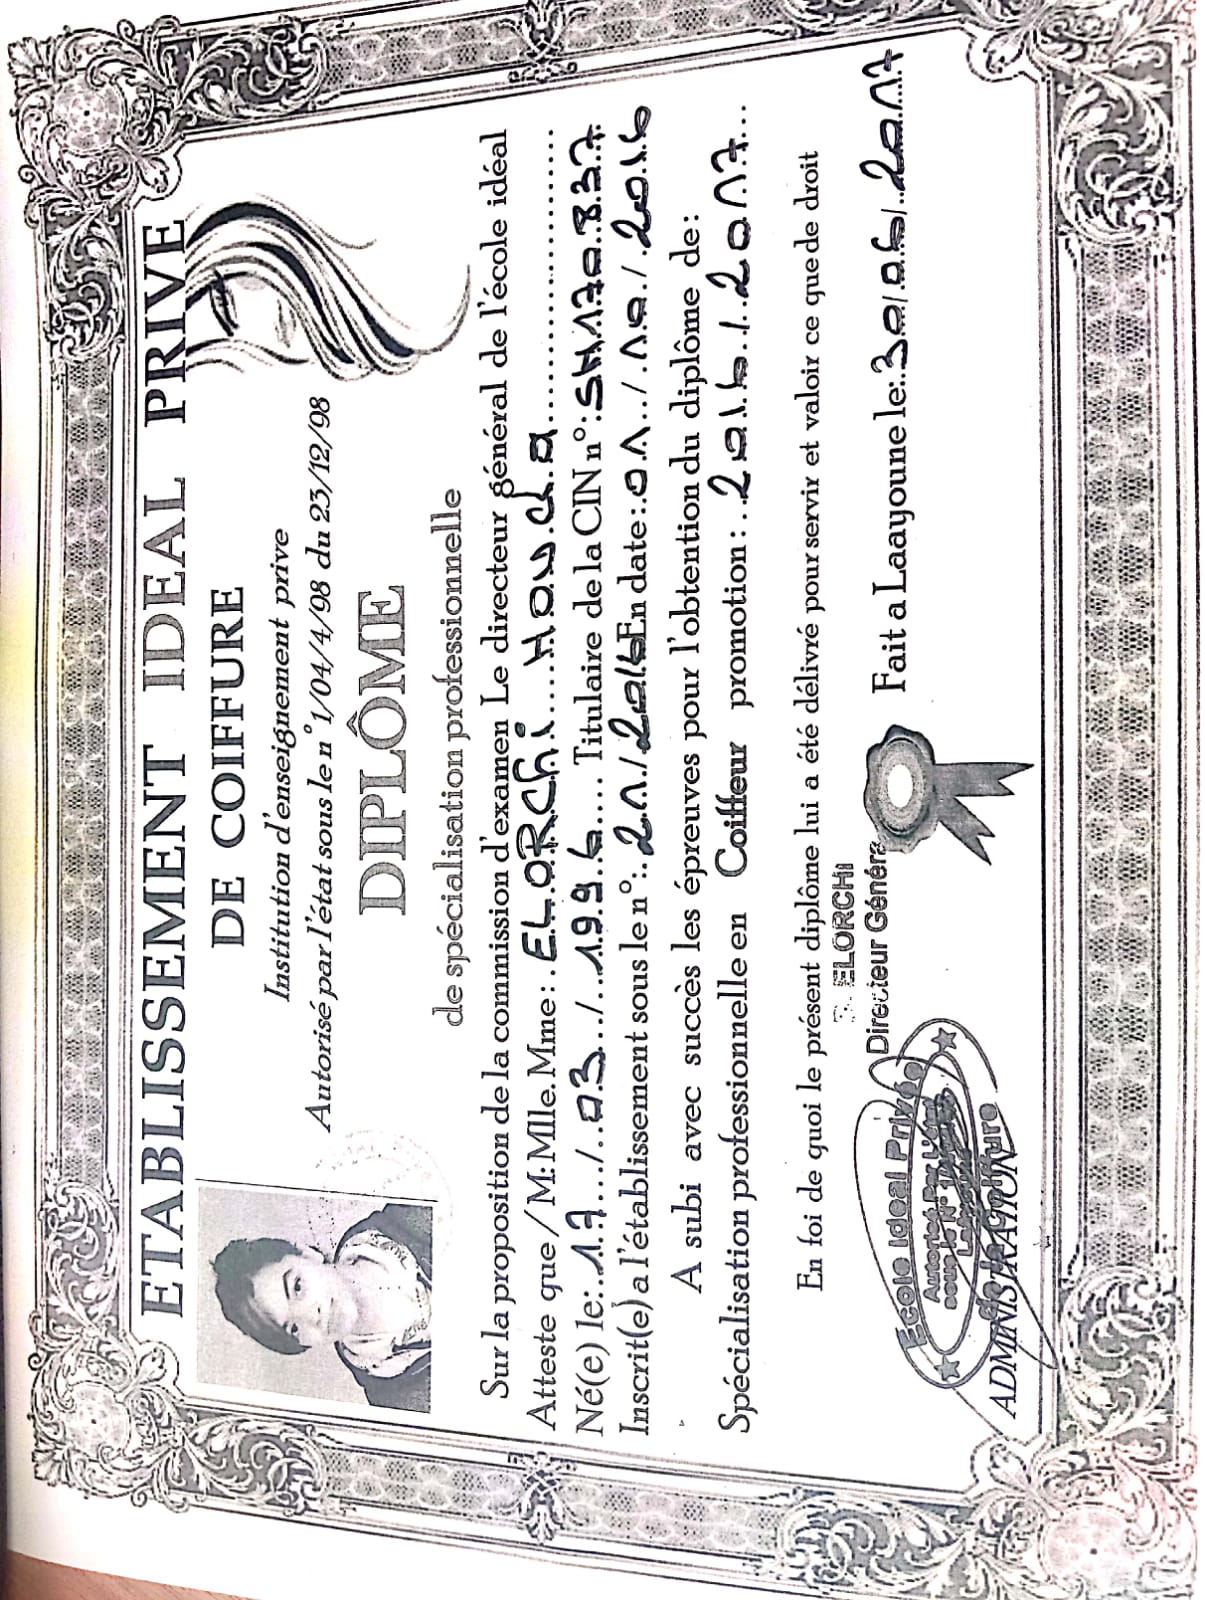 ETABLISSEMENT IDEAL PRIVE
DE COIFFURE
Institution d'enseignement prive
Autorisé par l'état sous le n°1/04/4/98 du 23/12/98
DIPLÔME
de spécialisation professionnelle
Sur la proposition de la commission d'examen Le directeur général de l'école idéal
Atteste que / M: Mlle. Mme : ELORChi....Houda....................
Né(e) le: 17.../..03.../...1996.... Titulaire de la CIN n°: SH170837
Inscrit(e) a l'établissement sous le n°: 21/2016 En date: 01../10./2016
A subi avec succès les épreuves pour l'obtention du diplôme de:
Spécialisation professionnelle en Coiffeur promotion: 2016/2017...
En foi de quoi le présent diplôme lui a été délivré pour servir et valoir ce que de droit
Fait a Laayoune le: 30/06/2017
ELORCHI
Directeur Général
Ecole Ideal Privée
Autorisé Par L'état
sous le N°
de la Coiffure
ADMINISTRATION